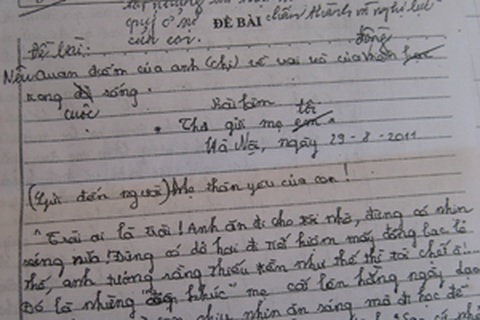 chân thành và nghị lực
quý ở mẹ ĐỀ BÀI
của con.
Đề bài:
đồng
Nêu quan điểm của anh (chị) về vai trò của
trong sống.
cuộc
Bài làm
tôi
Thư gửi mẹ em.
Hà Nội, ngày 29-8-2011
(Gửi đến người) Mẹ thân yêu của con!
"Trời ai là trời! Anh ăn đi cho tôi nhờ, đừng có nhịn
sáng nữa! Đừng có dở hơi đi tiết kiệm mấy đồng bạc lẻ
thế, anh tưởng rằng thiếu tiền như thế thì tôi chết à!...
Đó là những "điệp khúc" mẹ cằn nhằn hằng ngày dạo
nhịn ăn sáng mà đi học để